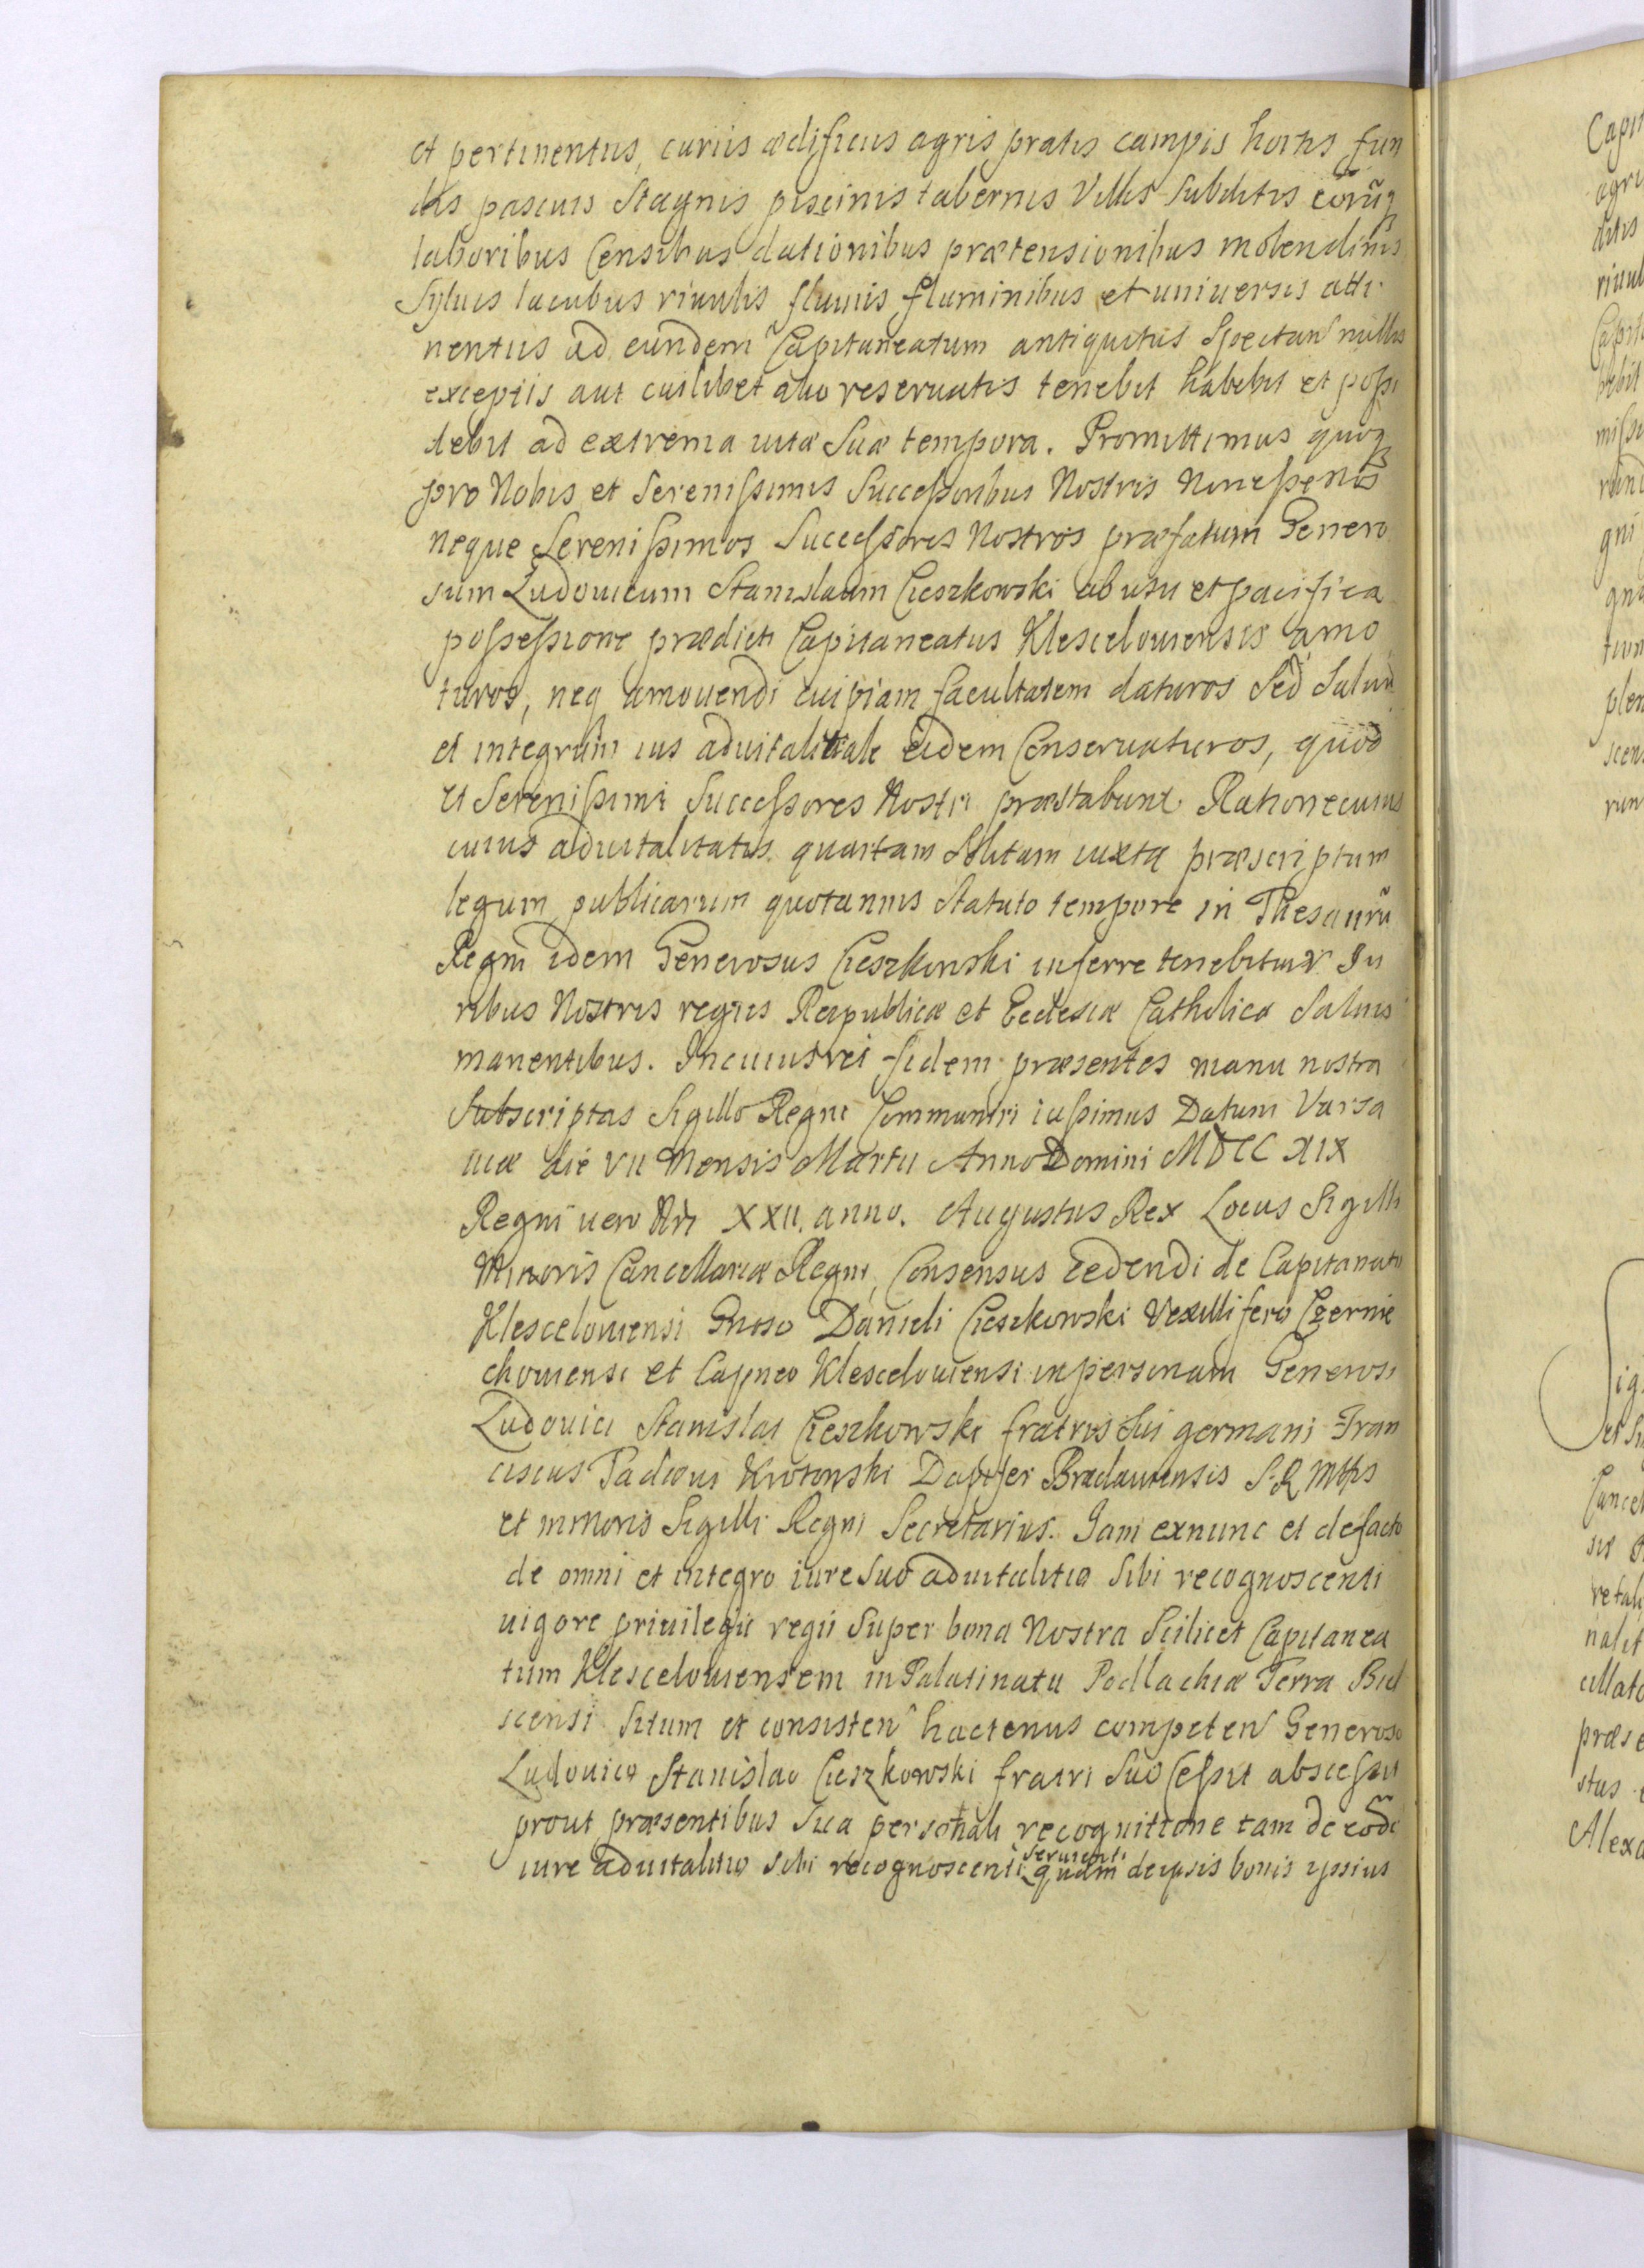 et pertinentiis, curiis ædificiis agris pratis campis hortis fun
dis pascuis Stagnis piscinis tabernis Villis Subditis eorũq
laboribus Censibus dationibus prætensionibus molendinis
Syluis lacubus riuulis fluuiis fluminibus et uniuersis atti
nentiis ad eundem Capitaneatum antiquitus Spectan nullis
exceptis aut cuilibet alio reseruatis tenebit habebit et possi
debit ad extrema uitæ Suæ tempora. Promittimus quoq
pro Nobis et Serenissimis Successoribus Nostris Non esse Nos
neque Serenissimos Successores Nostros præfatum Genero
sum Ludouicum Stanislaum Cieszkowski ab usu et pacifica
possessione prædicti Capitaneatus Klescelouiensis amo
turos, neq amouendi cuipiam facultatem daturos Sed Saluũ
et integrum ius aduitalitiale eidem Conseruaturos, quod
et Serenissimi Successores Nostri præstabunt. Ratione cuius
cuius aduitalitatis quartam Solitam iuxta præscriptum
legum publicarum quotannis Statuto tempore in Thesaurũ
Regni idem Generosus Cieszkowski inferre tenebitur. Iu
ribus Nostris regiis Reipublicæ et Ecclesiæ Catholicæ Saluis
manentibus. In cuius rei fidem præsentes manu nostra
Subscriptas Sigillo Regni Communiri iussimus Datum Varsa
uiæ die VII Mensis Martii Anno Domini MDCC XIX
Regni uero Nri XXII. anno. Augustus Rex Locus Sigilli
Minoris Cancellariæ Regni, Consensus cedendi de Capitaneatu
Klescelouiensi Gnoso Danieli Cieszkowski Vexillifero Czernie
chouiensi et Capneo Klescelouiensi in personam Generosi
Ludouici Stanislai Cieszkowski fratris Sui germani Fran
ciscus Tadæus Krotowski Dapifer Braclauiensis S.R Mtis
et minoris Sigilli Regni Secretarius. Iam exnunc et defacto
de omni et integro iure Suo aduitalitio Sibi recognoscenti
uigore priuilegii regii Super bona Nostra Scilicet Capitanea
tum Klescelouiensem in Palatinatu Podlachiæ Terra Biel
scensi Situm et consisten hactenus competen Generoso
Ludouico Stanislao Cieszkowski fratri Suo Cessit abscessit
prout præsentibus Sua personali recognitione tam de eodẽ
seruienti
iure aduitalitio Sibi recognoscenti quam de ipsis bonis ipsius